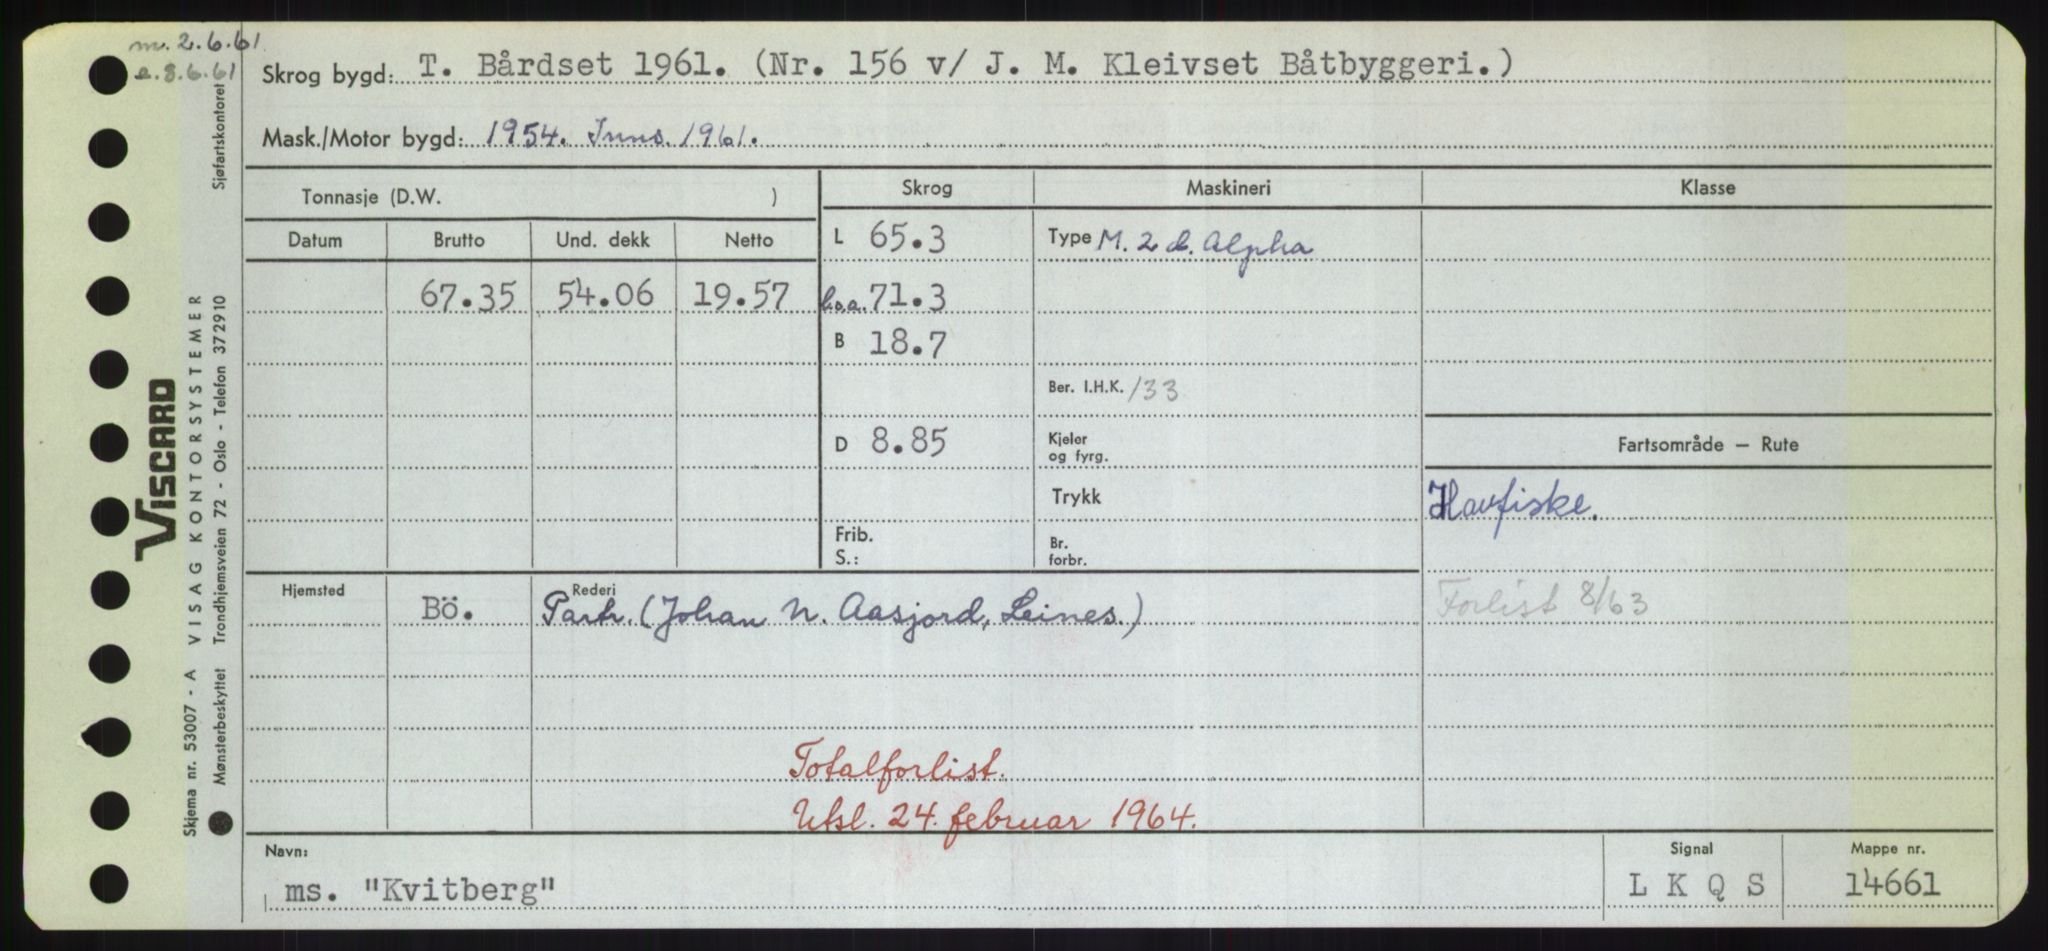 m. 2.6.61
a. 8.6.61
Skrog bygd: T. Bårdset 1961. (Nr. 156 v/ J. M. Kleivset Båtbyggeri.)
Mask./Motor bygd: 1954. Inns. 1961.
Tonnasje (D.W. )
Skrog
Maskineri
Klasse
Datum
Brutto
Und. dekk
Netto
L 65.3
Type M. 2 d. Alpha
67.35
54.06
19.57
l.o.a. 71.3
B 18.7
Ber. I.H.K. 133
D 8.85
Kjeler
og fyrg.
Fartsområde — Rute
Trykk
Havfiske.
Frib.
S.:
Br.
forbr.
Hjemsted
Bö.
Rederi
Partr. (Johan N. Aasjord, Leines.)
Forlist 8/63
Totalforlist.
Utsl. 24. februar 1964.
Navn:
ms. "Kvitberg"
Signal
L K Q S
Mappe nr.
14661
VISCARD
Skjema nr. 53007 - A VISAG KONTORSYSTEMER
Mønsterbeskyttet Trondhjemsveien 72 - Oslo - Telefon 372910 Sjøfartskontoret